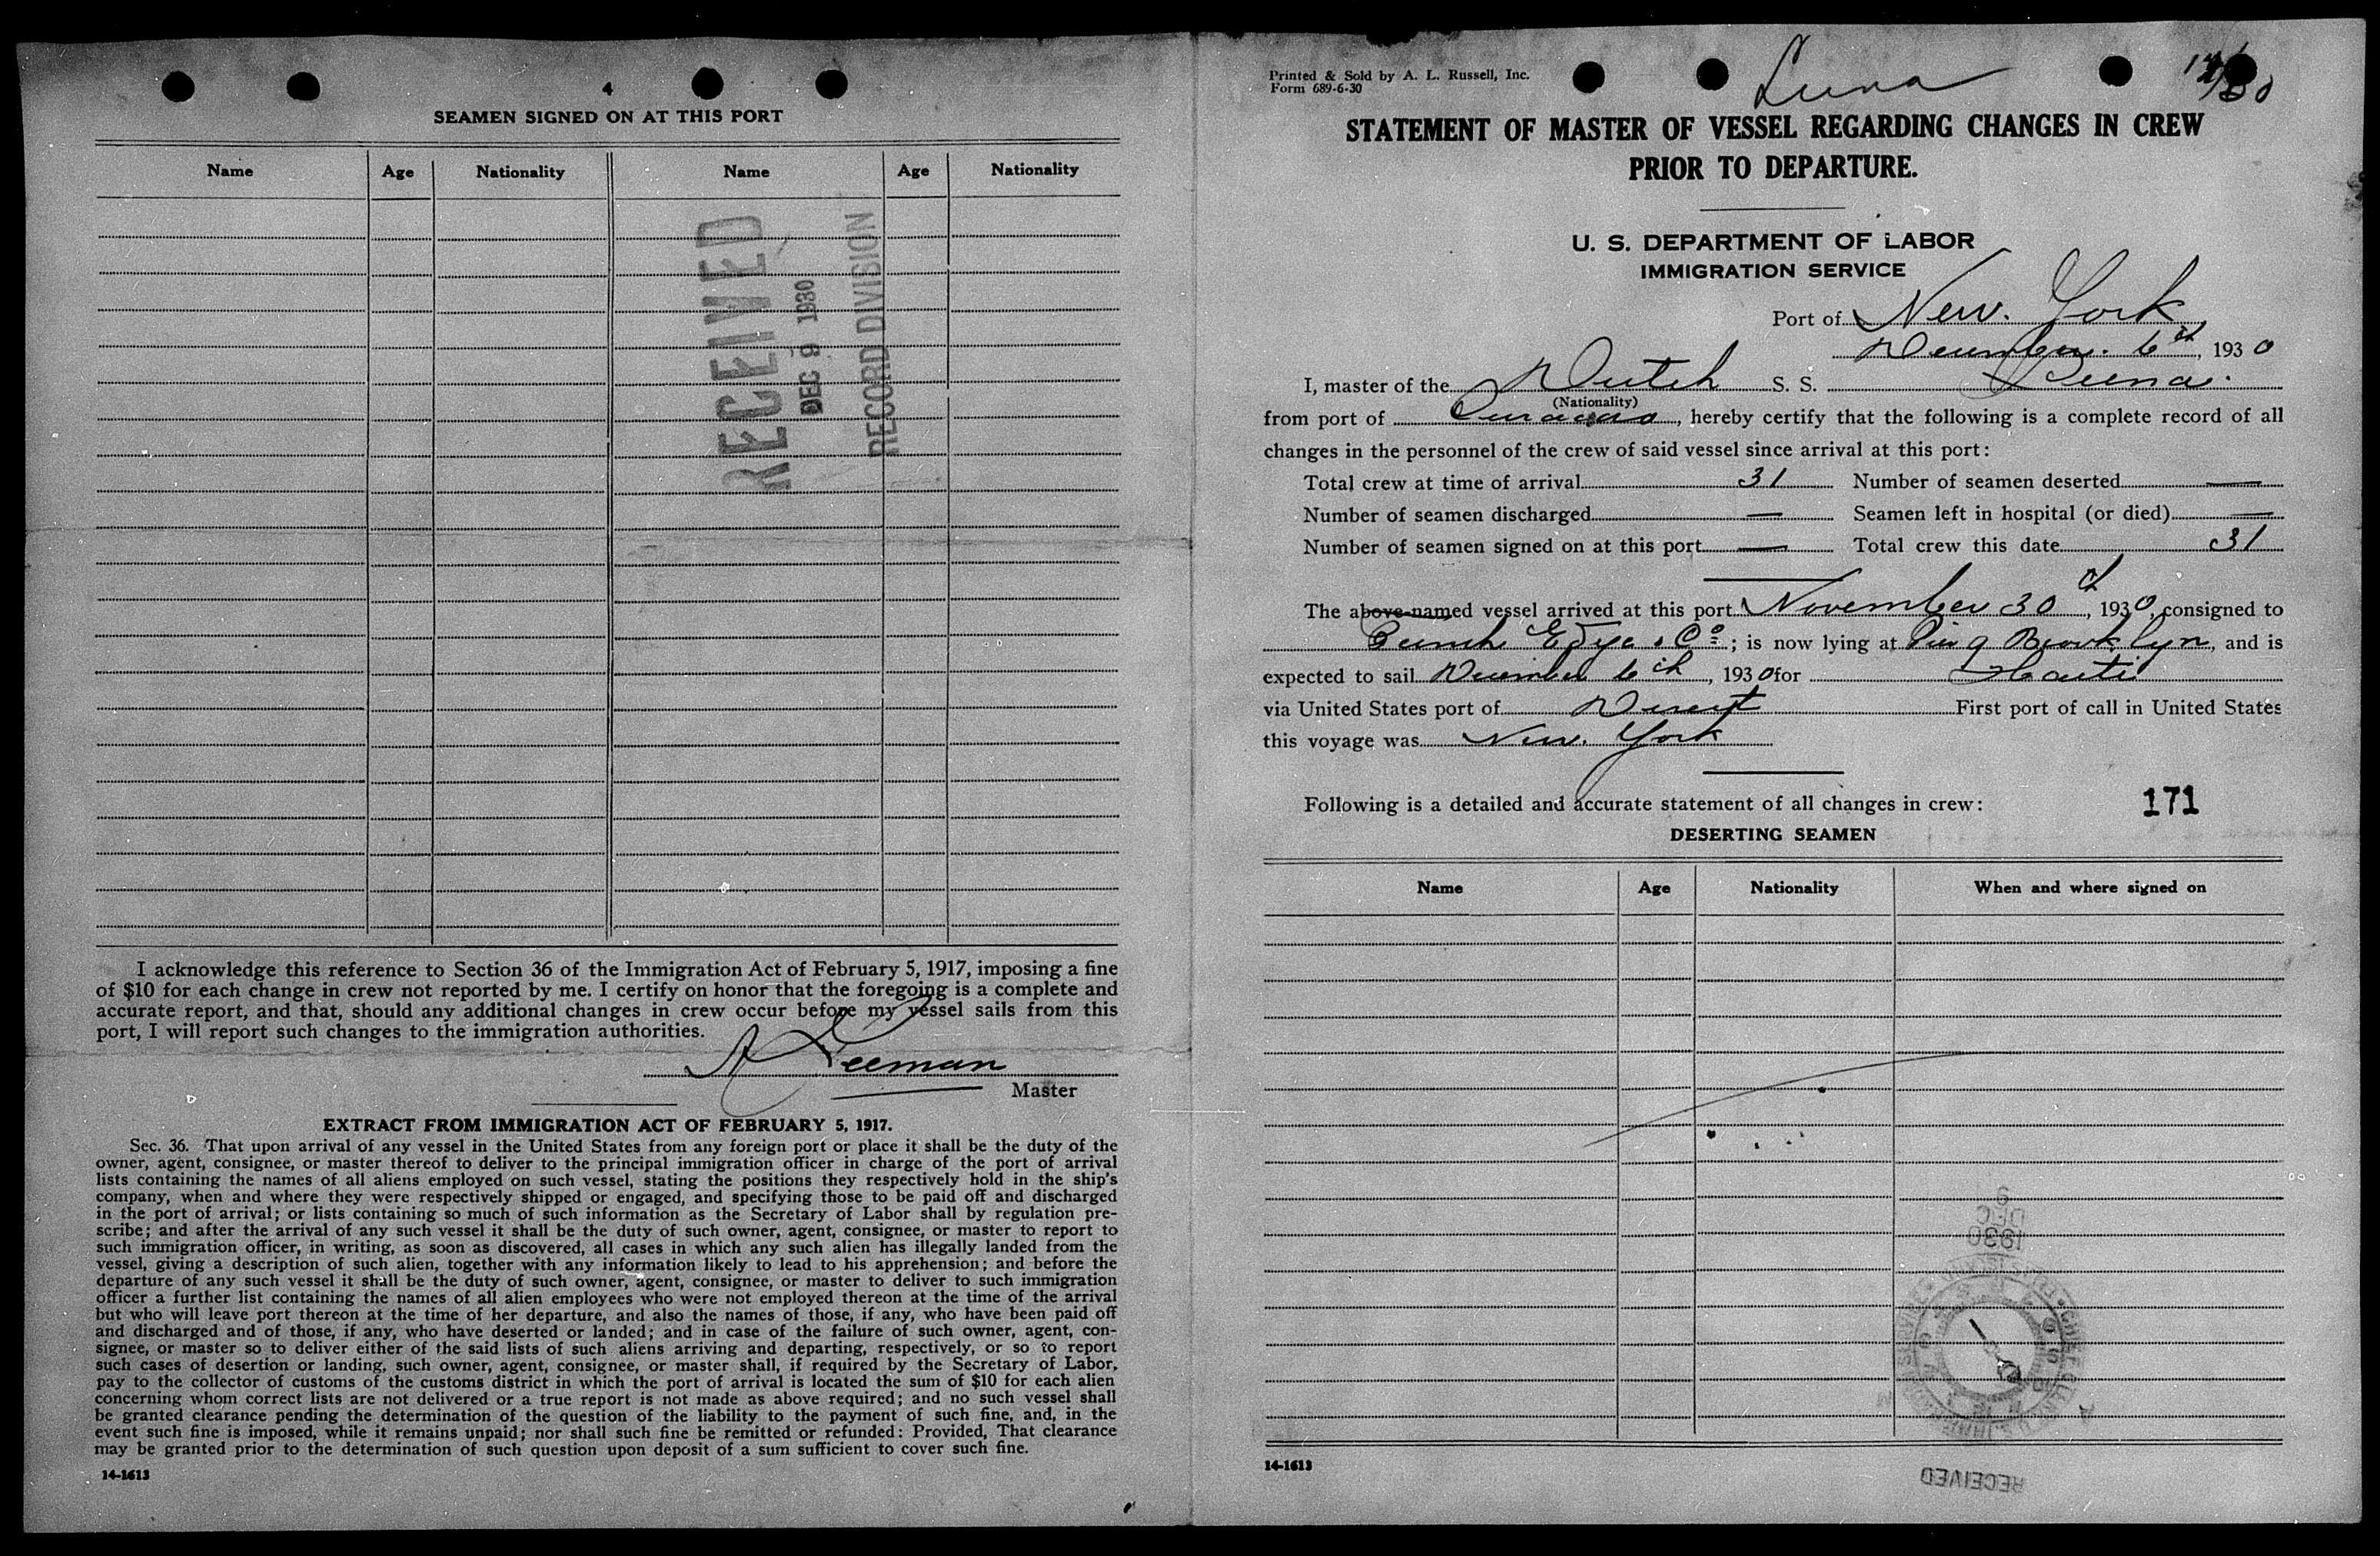 4
SEAMEN SIGNED ON AT THIS PORT
Name Age Nationality Name Age Nationality
RECEIVED
DEC 9 1930
RECORD DIVISION
I acknowledge this reference to Section 36 of the Immigration Act of February 5, 1917, imposing a fine
of $10 for each change in crew not reported by me. I certify on honor that the foregoing is a complete and
accurate report, and that, should any additional changes in crew occur before my vessel sails from this
port, I will report such changes to the immigration authorities.
A Leeman
Master
EXTRACT FROM IMMIGRATION ACT OF FEBRUARY 5, 1917.
Sec. 36. That upon arrival of any vessel in the United States from any foreign port or place it shall be the duty of the
owner, agent, consignee, or master thereof to deliver to the principal immigration officer in charge of the port of arrival
lists containing the names of all aliens employed on such vessel, stating the positions they respectively hold in the ship's
company, when and where they were respectively shipped or engaged, and specifying those to be paid off and discharged
in the port of arrival; or lists containing so much of such information as the Secretary of Labor shall by regulation pre-
scribe; and after the arrival of any such vessel it shall be the duty of such owner, agent, consignee, or master to report to
such immigration officer, in writing, as soon as discovered, all cases in which any such alien has illegally landed from the
vessel, giving a description of such alien, together with any information likely to lead to his apprehension; and before the
departure of any such vessel it shall be the duty of such owner, agent, consignee, or master to deliver to such immigration
officer a further list containing the names of all alien employees who were not employed thereon at the time of the arrival
but who will leave port thereon at the time of her departure, and also the names of those, if any, who have been paid off
and discharged and of those, if any, who have deserted or landed; and in case of the failure of such owner, agent, con-
signee, or master so to deliver either of the said lists of such aliens arriving and departing, respectively, or so to report
such cases of desertion or landing, such owner, agent, consignee, or master shall, if required by the Secretary of Labor,
pay to the collector of customs of the customs district in which the port of arrival is located the sum of $10 for each alien
concerning whom correct lists are not delivered or a true report is not made as above required; and no such vessel shall
be granted clearance pending the determination of the question of the liability to the payment of such fine, and, in the
event such fine is imposed, while it remains unpaid; nor shall such fine be remitted or refunded: Provided, That clearance
may be granted prior to the determination of such question upon deposit of a sum sufficient to cover such fine.
14-1613
Printed & Sold by A. L. Russell, Inc.
Form 689-6-30
Luna
STATEMENT OF MASTER OF VESSEL REGARDING CHANGES IN CREW
PRIOR TO DEPARTURE.
U. S. DEPARTMENT OF LABOR
IMMIGRATION SERVICE
Port of New. York
December. 6th, 1930
I, master of the Dutch S. S. Luna.
(Nationality)
from port of Curacao, hereby certify that the following is a complete record of all
changes in the personnel of the crew of said vessel since arrival at this port:
Total crew at time of arrival 31 Number of seamen deserted —
Number of seamen discharged — Seamen left in hospital (or died) —
Number of seamen signed on at this port — Total crew this date 31
The above-named vessel arrived at this port November 30th, 1930, consigned to
Funch Edye & Co; is now lying at Pier 9 Brooklyn, and is
expected to sail December 6th, 1930 for Haiti
via United States port of Direct First port of call in United States
this voyage was New. York
Following is a detailed and accurate statement of all changes in crew:
171
DESERTING SEAMEN
Name Age Nationality When and where signed on
9
DEC
1930
14-1613
RECEIVED